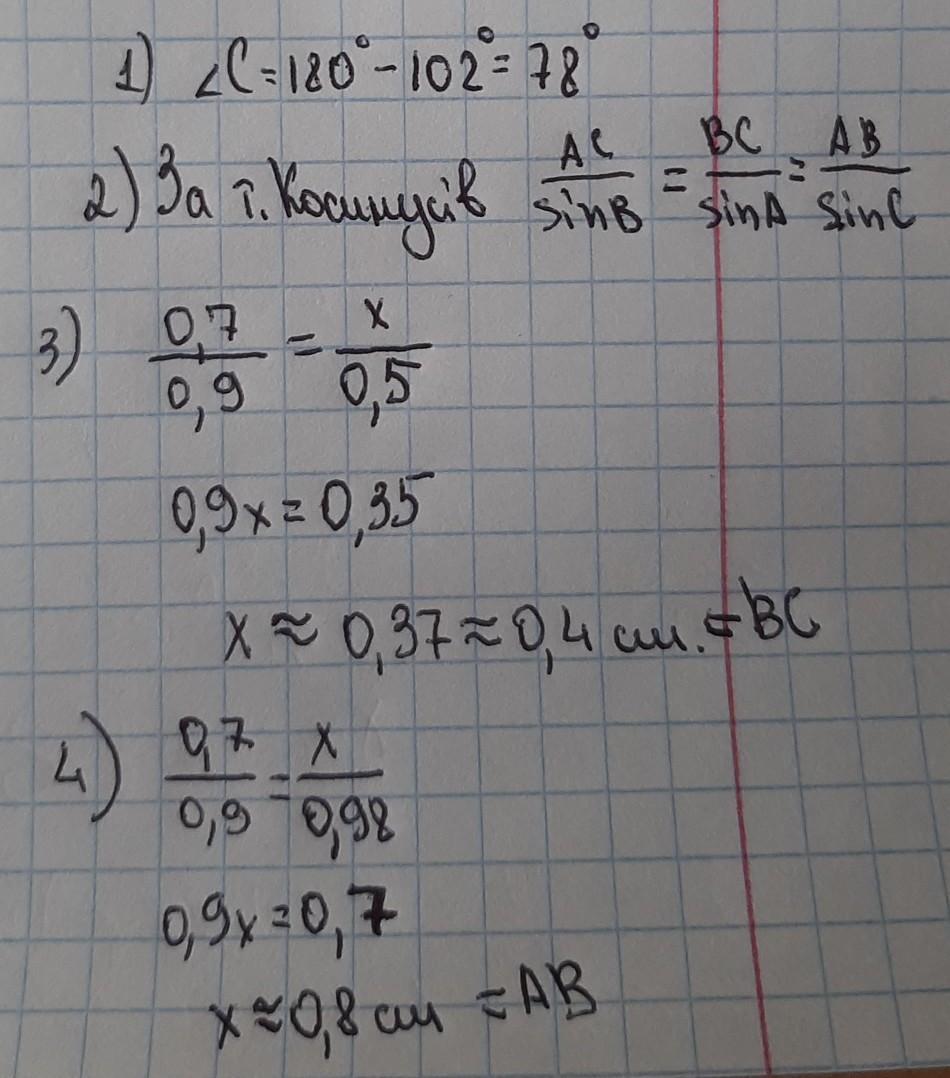 1) ∠C = 180° - 102° = 78°
2) За т. Косинусів AC/sinB = BC/sinA = AB/sinC
3) 0,7/0,9 = x/0,5
0,9x = 0,35
x ≈ 0,37 ≈ 0,4 см. = BC
4) 0,7/0,9 = x/0,98
0,9x = 0,7
x ≈ 0,8 см = AB